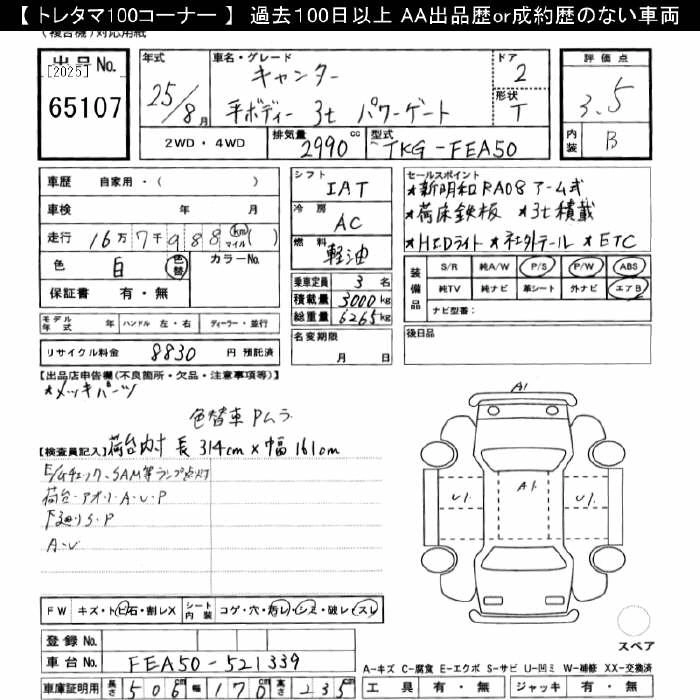 【 トレタマ100コーナー 】 過去100日以上 AA出品歴or成約歴のない車両
(複合機)対応用紙
出品No. [2025] 65107
年式 25/8月
車名・グレード キャンター
平ボディー 3t パワーゲート
ドア 2
形状 T
評価点 3.5
内装 B
2WD・4WD 排気量 2990 cc 型式 TKG-FEA50
車歴 自家用・( )
車検 年 月
走行 16万7千988 km マイル( )
色 白 色替 カラーNo.
保証書 有・無
シフト IAT
冷房 AC
燃料 軽油
乗車定員 3名
積載量 3000kg
総重量 6265kg
名変期限 月 日
セールスポイント
★新明和RA08アーム式
★荷床鉄板 ★3t積載
★HIDライト ★社外テール ★ETC
装備品 S/R 純A/W P/S P/W ABS
純TV 純ナビ 革シート 外ナビ エアB
ナビ型番:
後日品
モデル年式 年 ハンドル 左・右 ディーラー・並行
リサイクル料金 8830 円 預託済
【出品店申告欄(不良箇所・欠品・注意事項等)】
★メッキパーツ
色替車 Pムラ
【検査員記入】荷台内寸 長314cm×幅161cm
E/Gチェック、SAM等ランプ点灯
荷台・アオリ・A・U・P
下廻りS・P
A・U
A1
U1 A1 U1
FW キズ・トビ石・割レX シート内装 コゲ・穴・汚レ・シミ・破レ・スレ
登録No.
車台No. FEA50-521339
車庫証明用 長さ 506cm 幅 176cm 高さ 235cm
スペア
A-キズ C-腐食 E-エクボ S-サビ U-凹ミ W-補修 XX-交換済
工具 有・無 ジャッキ 有・無